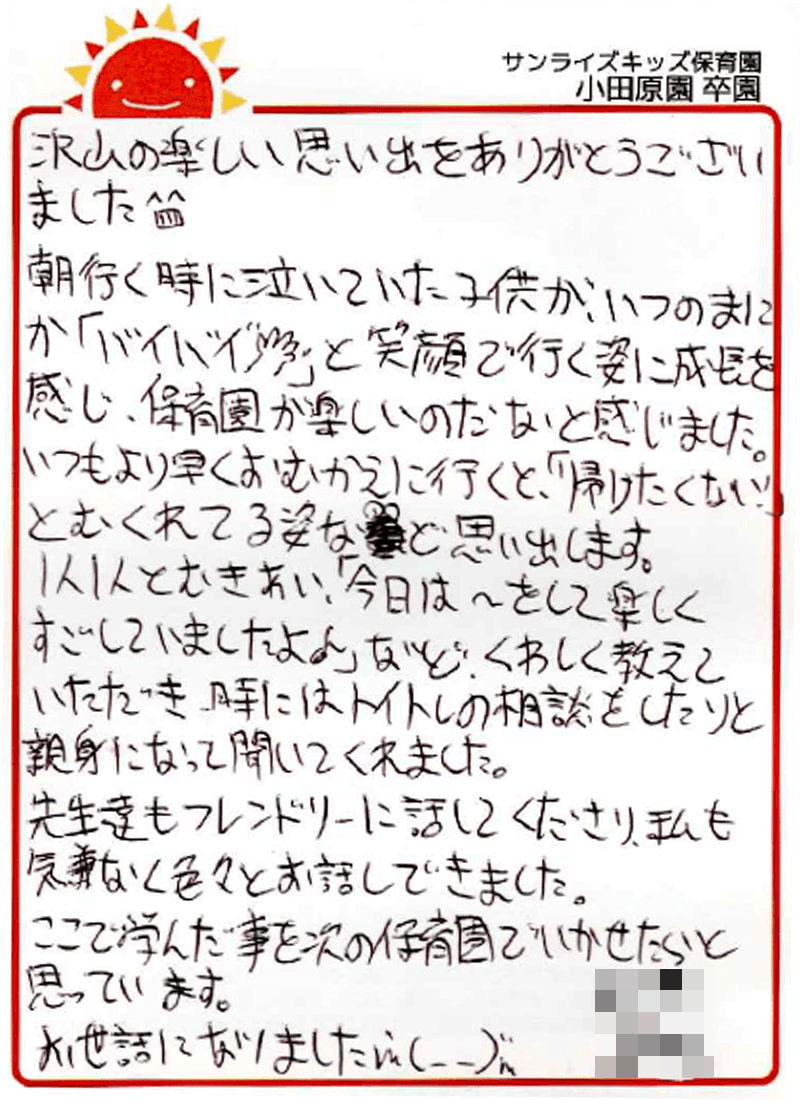 サンライズキッズ保育園
小田原園 卒園
沢山の楽しい思い出をありがとうござい
ました
朝行く時に泣いていた子供が、いつのまに
か「バイバイ」と笑顔で行く姿に成長を
感じ、保育園が楽しいのだないと感じました。
いつもより早くおむかえに行くと、「帰りたくない」
とむくれてる姿など思い出します。
1人1人とむきあい、「今日は〜をして楽しく
すごしていましたよ」など、くわしく教えて
いただき、時にはトイトレの相談をしたりと
親身になって聞いてくれました。
先生達もフレンドリーに話してくださり、私も
気兼なく色々とお話しできました。
ここで学んだ事を次の保育園でいかせたらいと
思っています。
お世話になりましたm(__)m